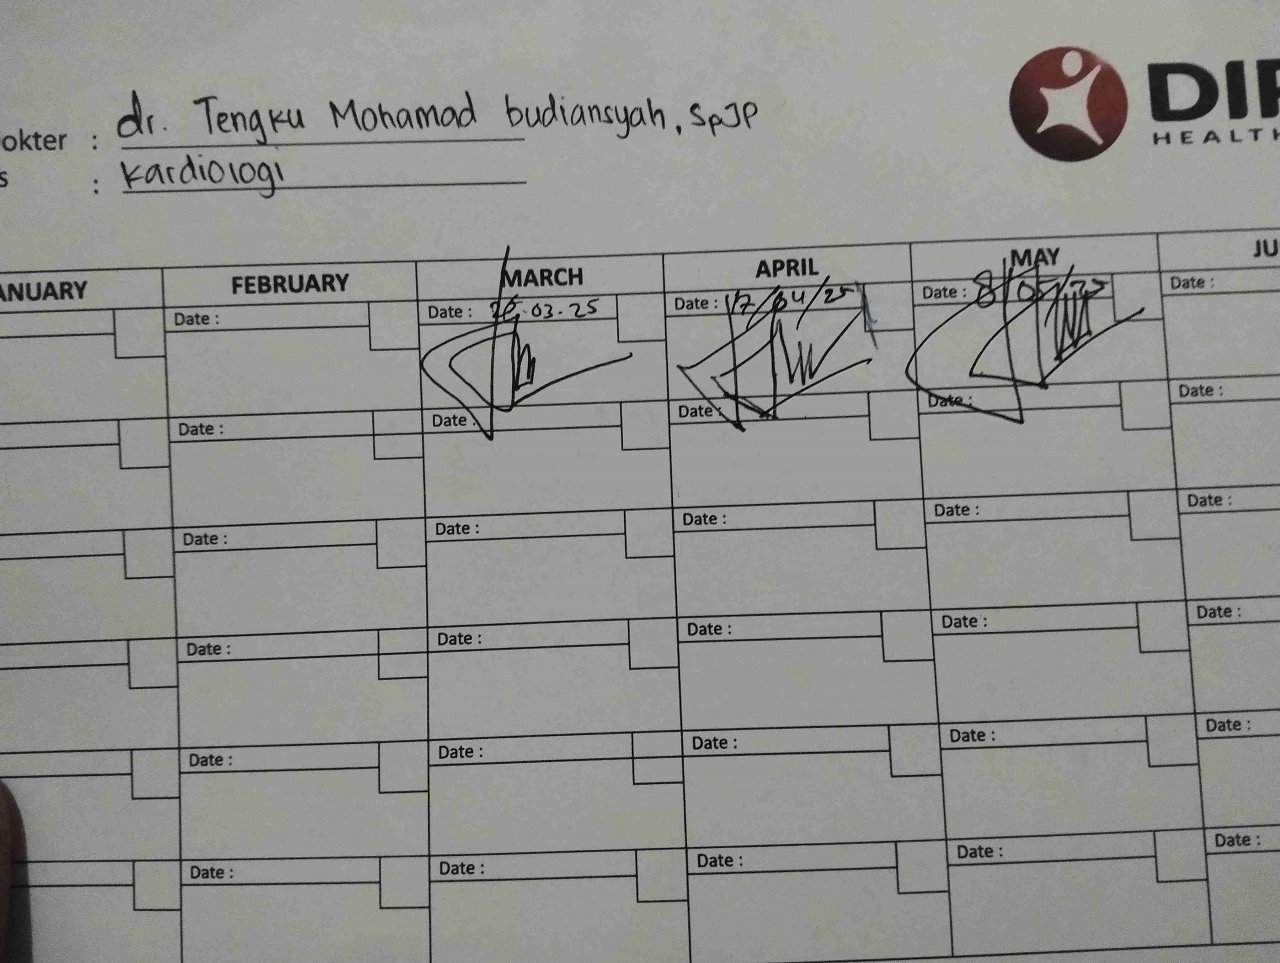 okter : dr. Tengku Mohamad budiansyah, SpJP
s : Kardiologi
DIP
HEALTH
ANUARY FEBRUARY MARCH APRIL MAY JU
Date : Date : .03.25 Date : 17/04/25 Date : 8/05/25 Date :
Date : Date : Date : Date : Date :
Date : Date : Date : Date : Date :
Date : Date : Date : Date : Date :
Date : Date : Date : Date : Date :
Date : Date : Date : Date : Date :